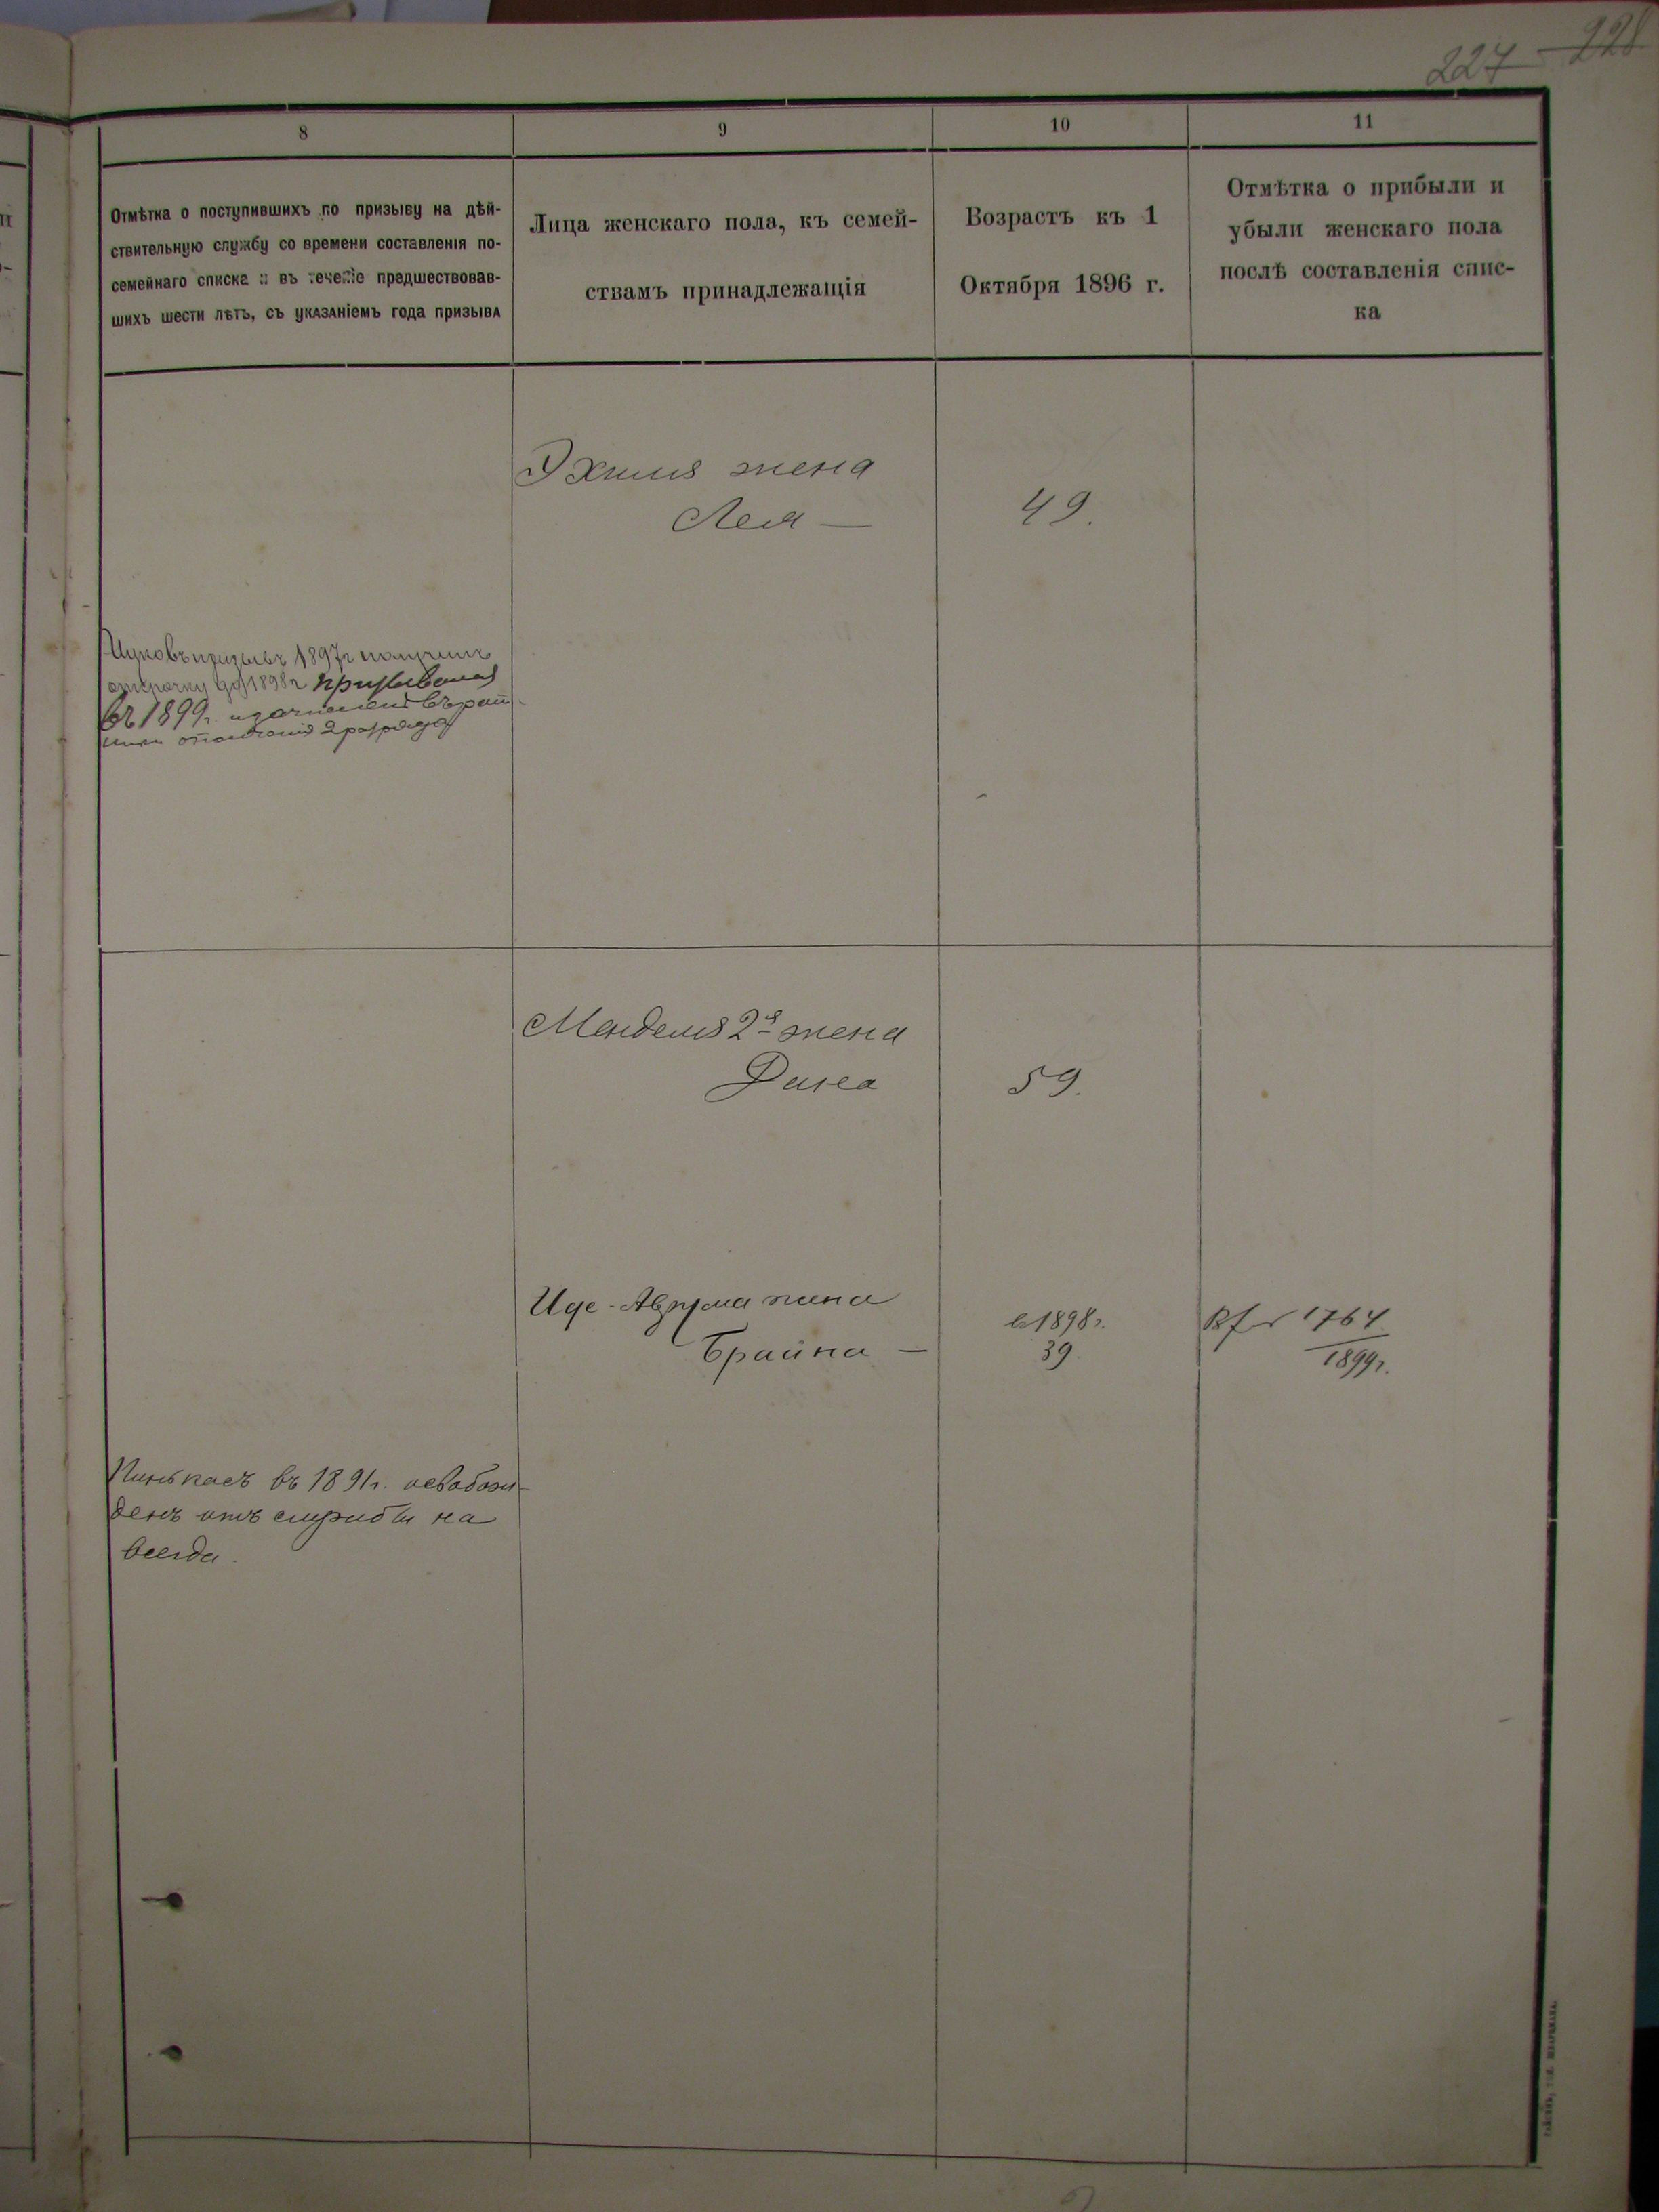 227 228
8
9
10
11
Отмѣтка о поступившихъ по призыву на дѣй-
ствительную службу со времени составленія по-
семейнаго списка и въ теченіе предшествовав-
шихъ шести лѣтъ, съ указаніемъ года призыва
Лица женскаго пола, къ семей-
ствамъ принадлежащія
Возрастъ къ 1
Октября 1896 г.
Отмѣтка о прибыли и
убыли женскаго пола
послѣ составленія спис-
ка
Ихиля жена
Лея —
49.
призывѣ 1897г получилъ
отсрочку до 1898г призывался
въ 1899г. и зачисленъ въ рат
ники ополченія 2 разряда
Менделя 2я жена
Двиса
59.
Иде-Аврума жена
Брайна —
въ 1898г.
39
1764
1899г.
Пинькасъ въ 1891г. освобож-
денъ отъ службы на
всегда.